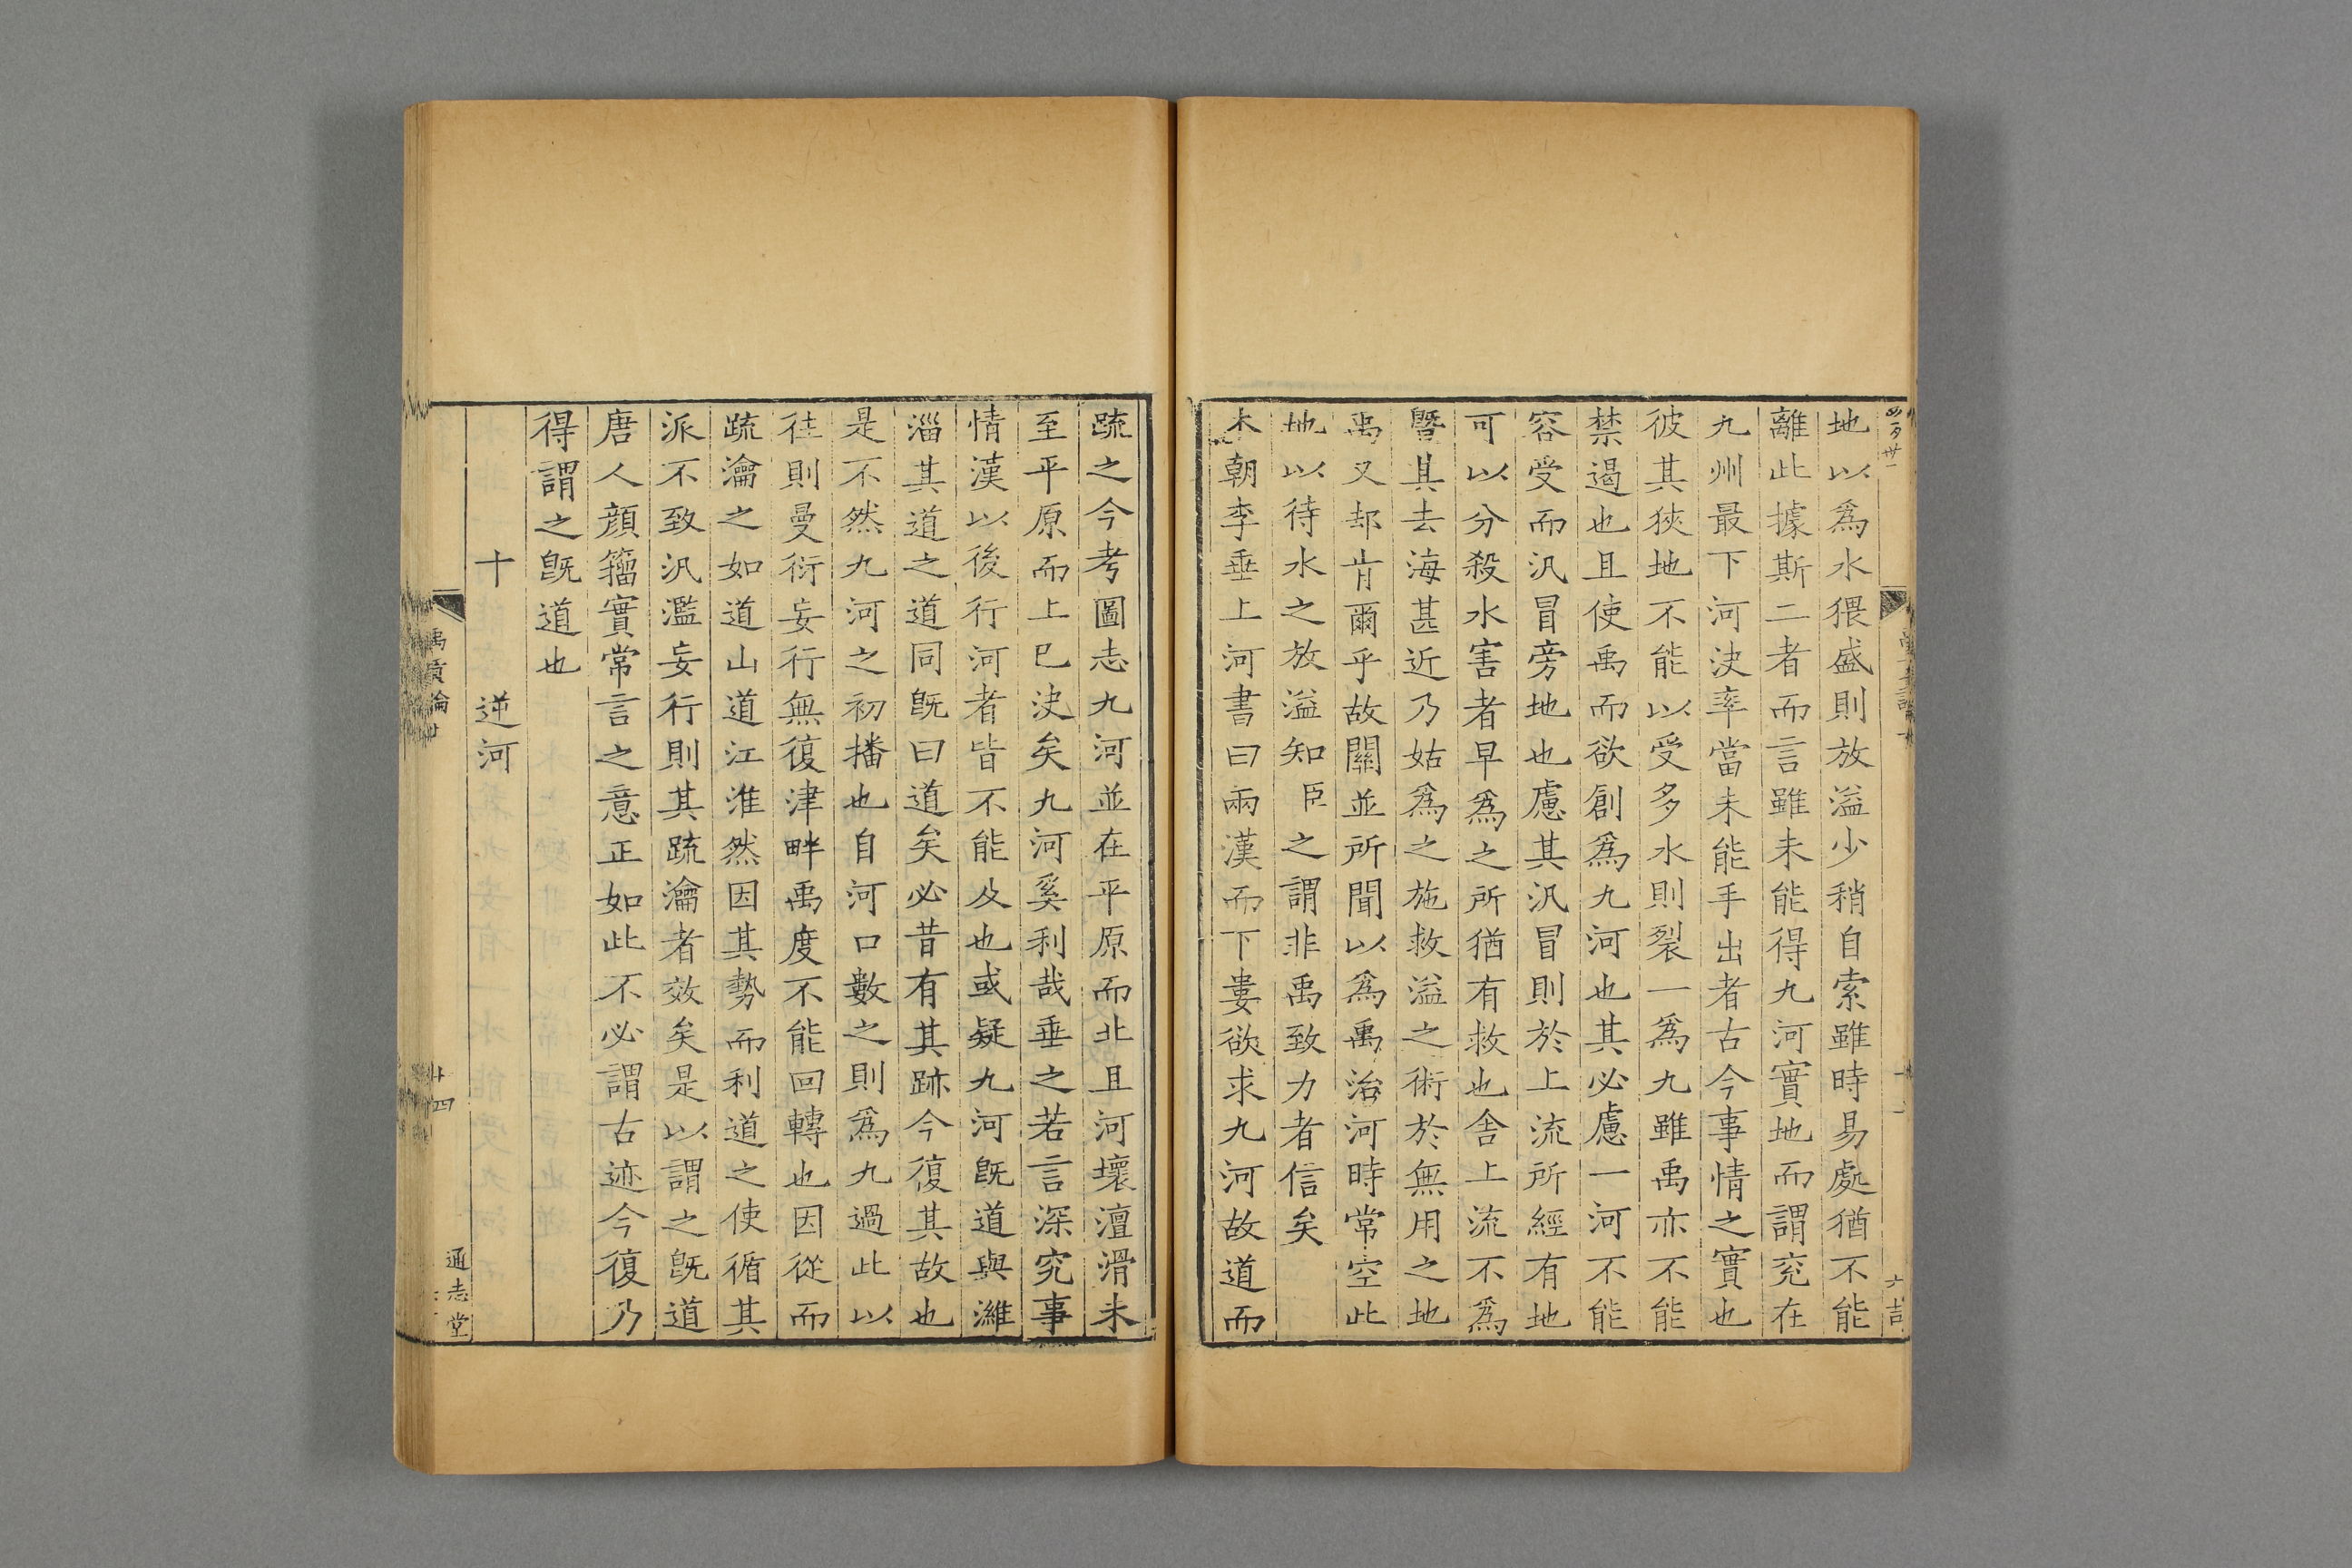 地以爲水猥盛則放溢少稍自索雖時易處猶不能
離此據斯二者而言雖未能得九河實地而謂兖在
九州最下河決率當未能手出者古今事情之實也
彼其狹地不能以受多水則裂一爲九雖禹亦不能
禁遏也且使禹而欲創爲九河也其必慮一河不能
容受而汎冒旁地也慮其汎冒則於上流所經有地
可以分殺水害者早爲之所猶有救也舍上流不爲
曁其去海甚近乃姑爲之施救溢之術於無用之地
禹又却肯爾乎故關並所聞以爲禹治河時常空此
地以待水之放溢知臣之謂非禹致力者信矣
本朝李垂上河書曰兩漢而下婁欲求九河故道而
疏之今考圖志九河並在平原而北且河壞澶滑未
至平原而上已決矣九河奚利哉垂之若言深究事
情漢以後行河者皆不能及也或疑九河旣道與濰
淄其道之道同旣曰道矣必昔有其跡今復其故也
是不然九河之初播也自河口數之則爲九過此以
往則曼衍妄行無復津畔禹度不能回轉也因從而
疏瀹之如道山道江淮然因其勢而利道之使循其
派不致汎濫妄行則其疏瀹者效矣是以謂之旣道
唐人顔籀實常言之意正如此不必謂古迹今復乃
得謂之旣道也
十　逆河
禹貢論
廿四
通志堂